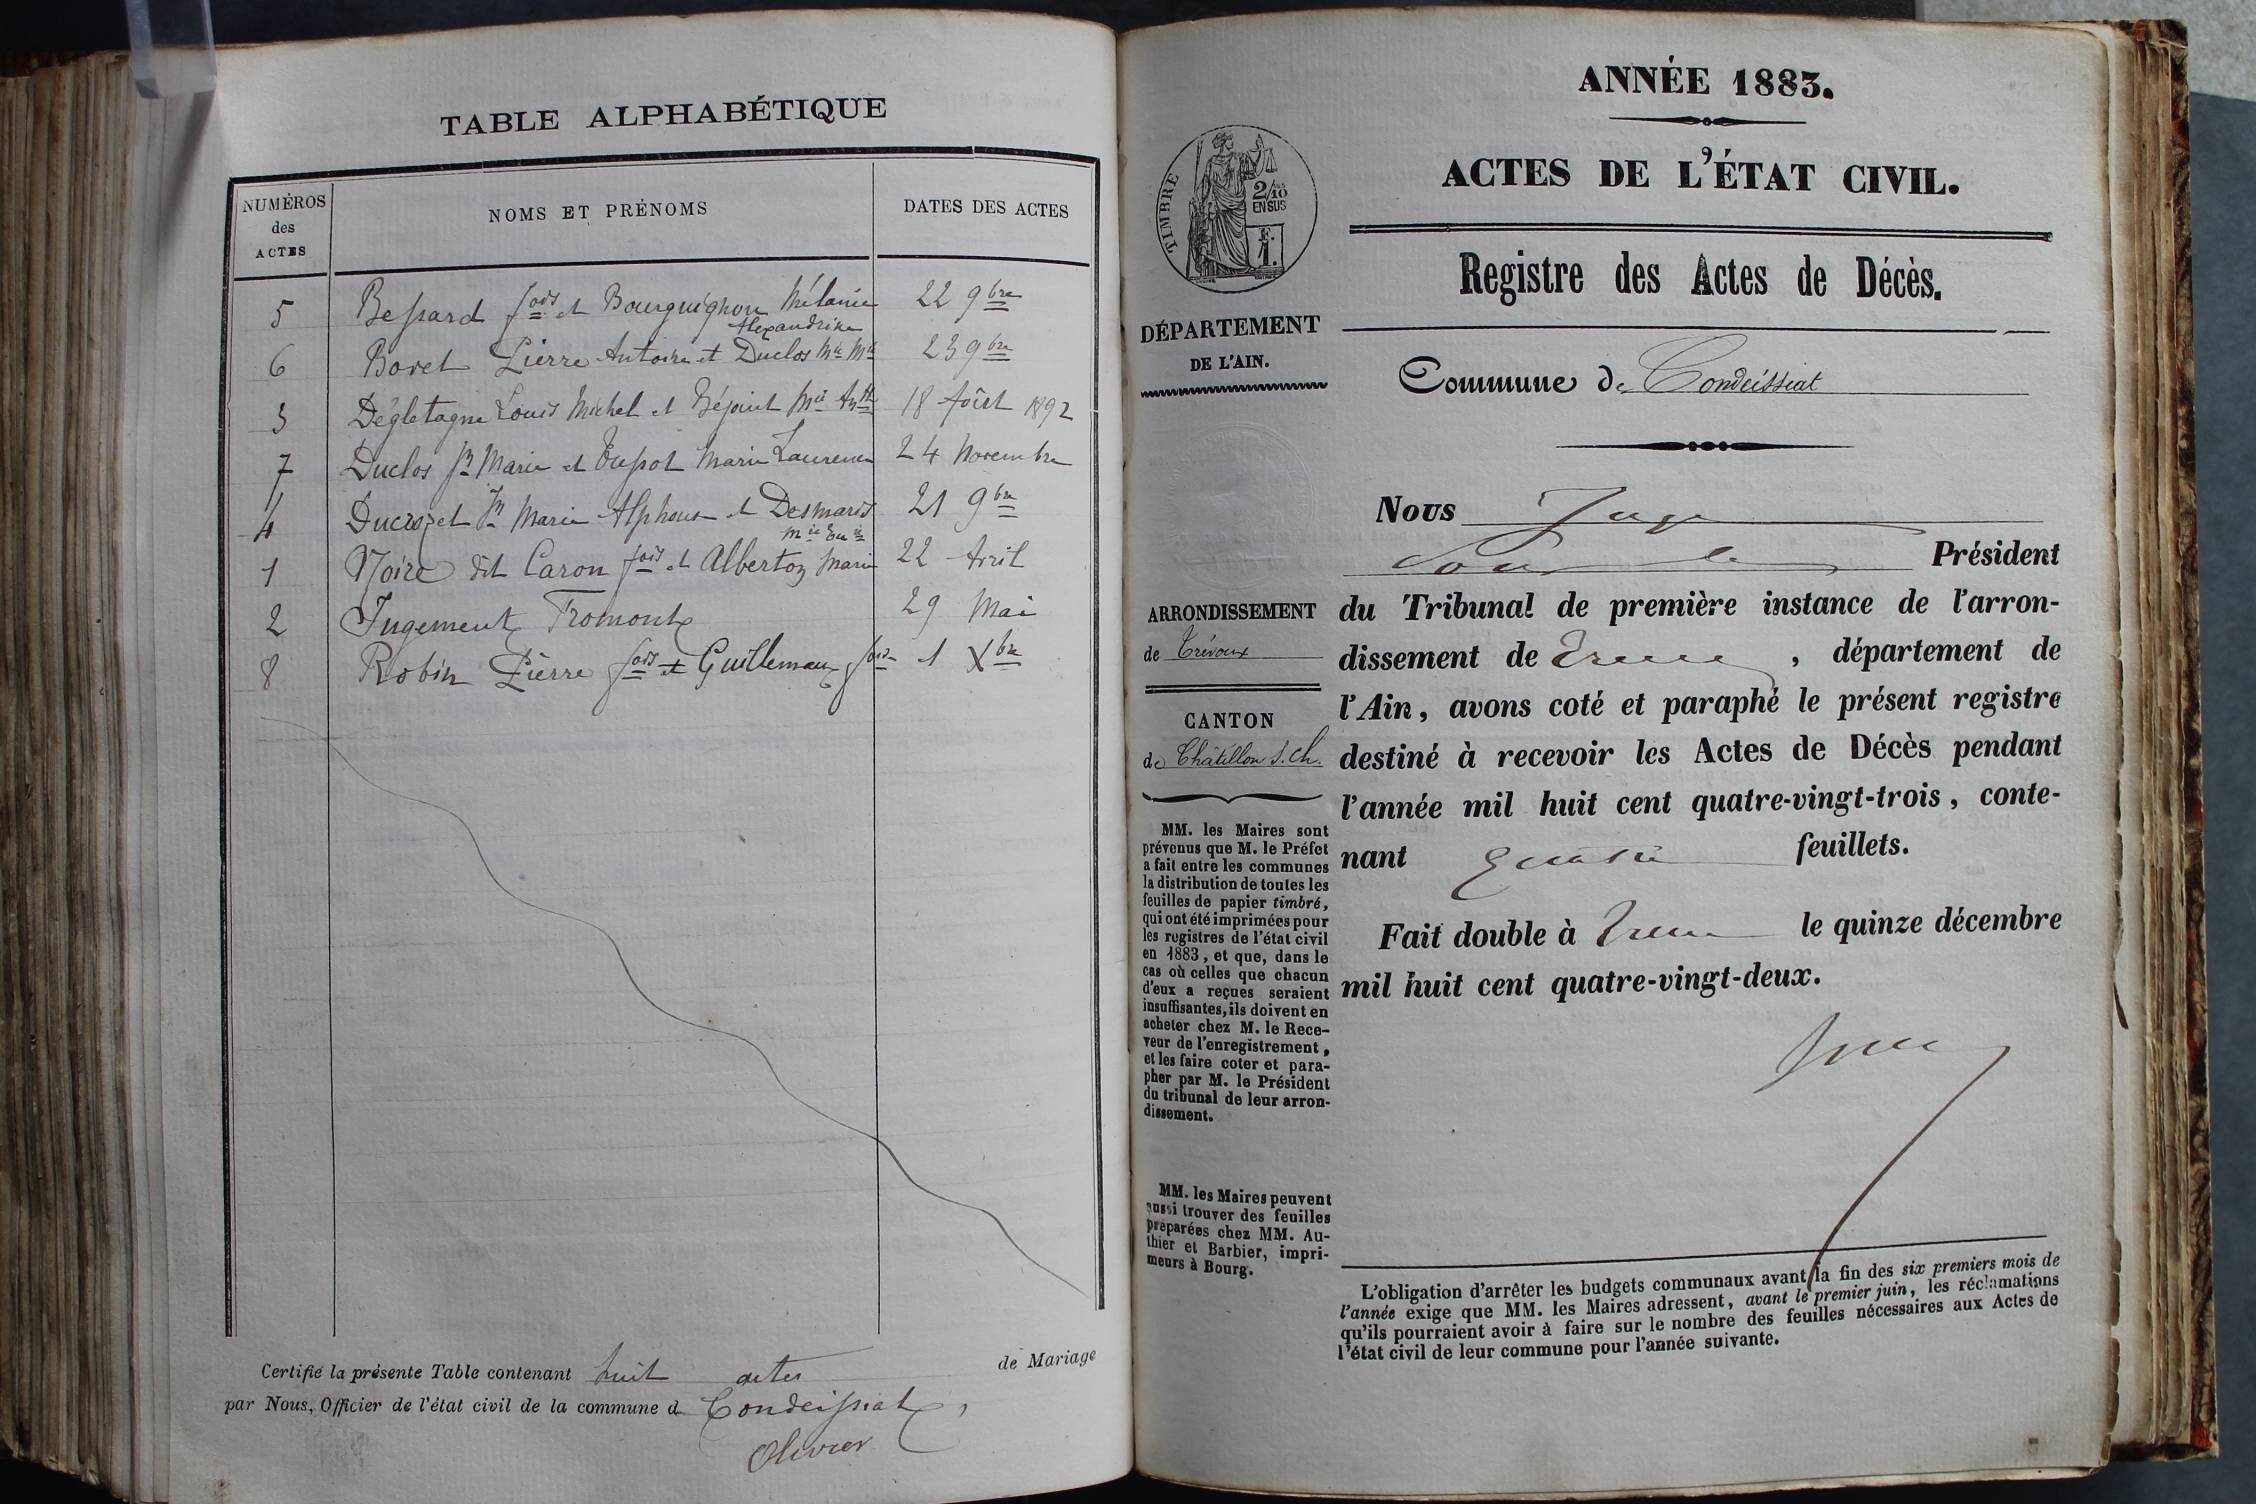 TABLE ALPHABÉTIQUE
NUMÉROS des ACTES
NOMS ET PRÉNOMS
DATES DES ACTES
5 Bessard fois et Bourguignon Mélanie 22 9bre
Alexandrine
6 Bovet Pierre Antoine et Duclos Mie Mie 23 9bre
3 Dégletagne Louis Michel et Béjoint Mie Antte 18 Août 1892
7 Duclos Jn Marie et Tupot Marie Laurence 24 Novembre
4 Ducrozet Jn Marie Alphonse et Desmaris 21 9bre
1 Noire dit Caron fois et Alberton Marie 22 Avril
2 Jugement Fromont 29 Mai
8 Robin Pierre fois et Guillemaux 1 Xbre
Certifie la présente Table contenant huit actes de Mariage
par Nous, Officier de l'état civil de la commune d Condeissiat,
Olivier
ANNÉE 1883.
ACTES DE L'ÉTAT CIVIL.
TIMBRE
2/10
EN SUS
1 F.
Registre des Actes de Décès.
DÉPARTEMENT
DE L'AIN.
Commune de Condeissiat
ARRONDISSEMENT
de Trévoux
CANTON
de Châtillon s. Ch.
MM. les Maires sont
prévenus que M. le Préfet
a fait entre les communes
la distribution de toutes les
feuilles de papier timbré,
qui ont été imprimées pour
les registres de l'état civil
en 1883, et que, dans le
cas où celles que chacun
d'eux a reçues seraient
insuffisantes, ils doivent en
acheter chez M. le Rece-
veur de l'enregistrement,
et les faire coter et para-
pher par M. le Président
du tribunal de leur arron-
dissement.
MM. les Maires peuvent
aussi trouver des feuilles
préparées chez MM. Au-
thier et Barbier, impri-
meurs à Bourg.
Nous Juge
Pour le Président
du Tribunal de première instance de l'arron-
dissement de Trévoux, département de
l'Ain, avons coté et paraphé le présent registre
destiné à recevoir les Actes de Décès pendant
l'année mil huit cent quatre-vingt-trois, conte-
nant quatre feuillets.
Fait double à Trévoux le quinze décembre
mil huit cent quatre-vingt-deux.
L'obligation d'arrêter les budgets communaux avant la fin des six premiers mois de
l'année exige que MM. les Maires adressent, avant le premier juin, les réclamations
qu'ils pourraient avoir à faire sur le nombre des feuilles nécessaires aux Actes de
l'état civil de leur commune pour l'année suivante.